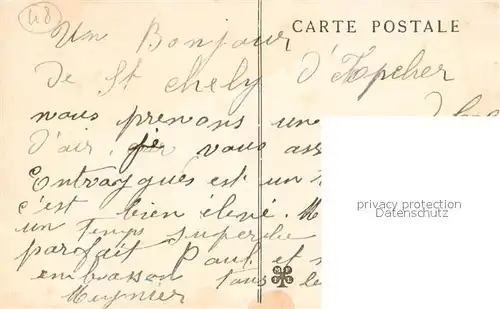 48
CARTE POSTALE
Un Bonjour
de St Chely d'Apcher
nous prenons une
d'air. je vous ass
Entraygues est un
c'est bien élevé. M
un temps superbe
parfait Paul et
embrasson tous le
Meynier
privacy protection
Datenschutz